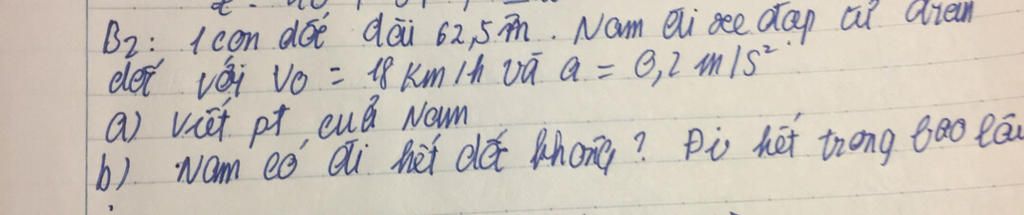 B2: 1 con dốc dài 62,5m. Nam đi xe đạp từ chân
dốt với Vo = 18 km/h và a = 0,2 m/s²
a) Viết pt của Nam
b) Nam có đi hết dốt không? Đi hết trong bao lâu